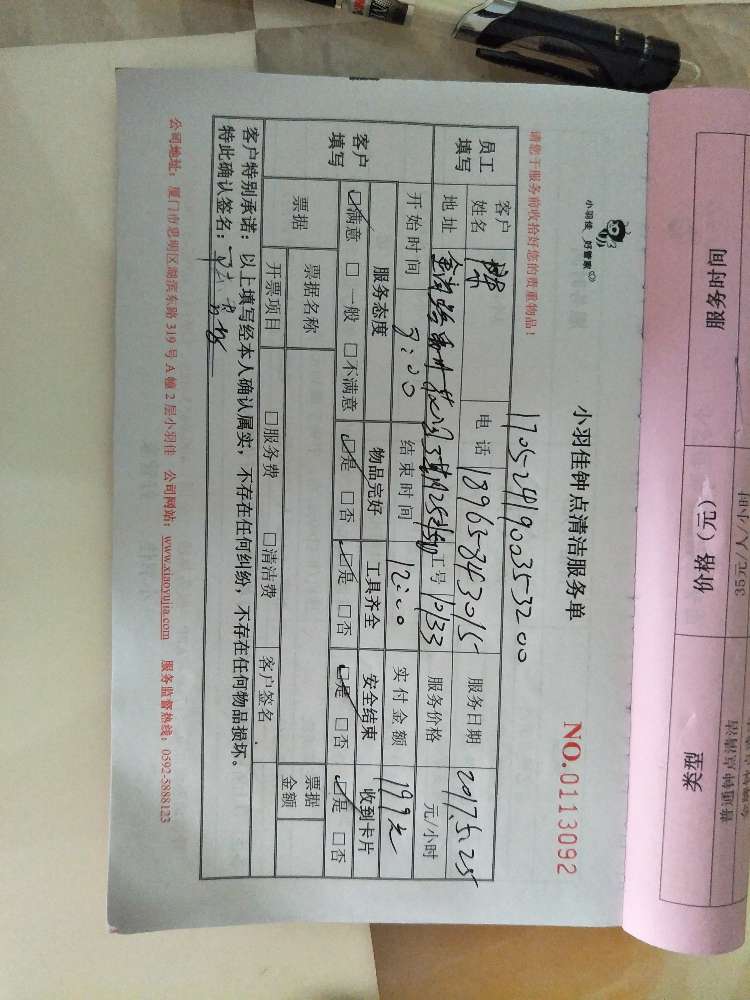 服务时间
价格（元）
35元/人/小时
类型
普通钟点清洁
小羽佳 好管家
小羽佳钟点清洁服务单
NO.0113092
请您于服务前收拾好您的贵重物品！
1705241900353200
员工填写
客户姓名
电话 18965843015
服务日期 2017.5.25
地址
工号 10133
服务价格 元/小时
客户填写
开始时间 9:00
结束时间 12:00
实付金额 199元
服务态度 物品完好 工具齐全 安全结束 收到卡片
☑满意 □一般 □不满意 ☑是 □否 ☑是 □否 ☑是 □否 ☑是 □否
票据
票据名称
票据金额
开票项目 □服务费 □清洁费 客户签名
客户特别承诺：以上填写经本人确认属实，不存在任何纠纷，不存在任何物品损坏。
特此确认签名：
公司地址：厦门市思明区湖滨东路319号A幢2层小羽佳 公司网站：www.xiaoyujia.com 服务监督热线：0592-5888123